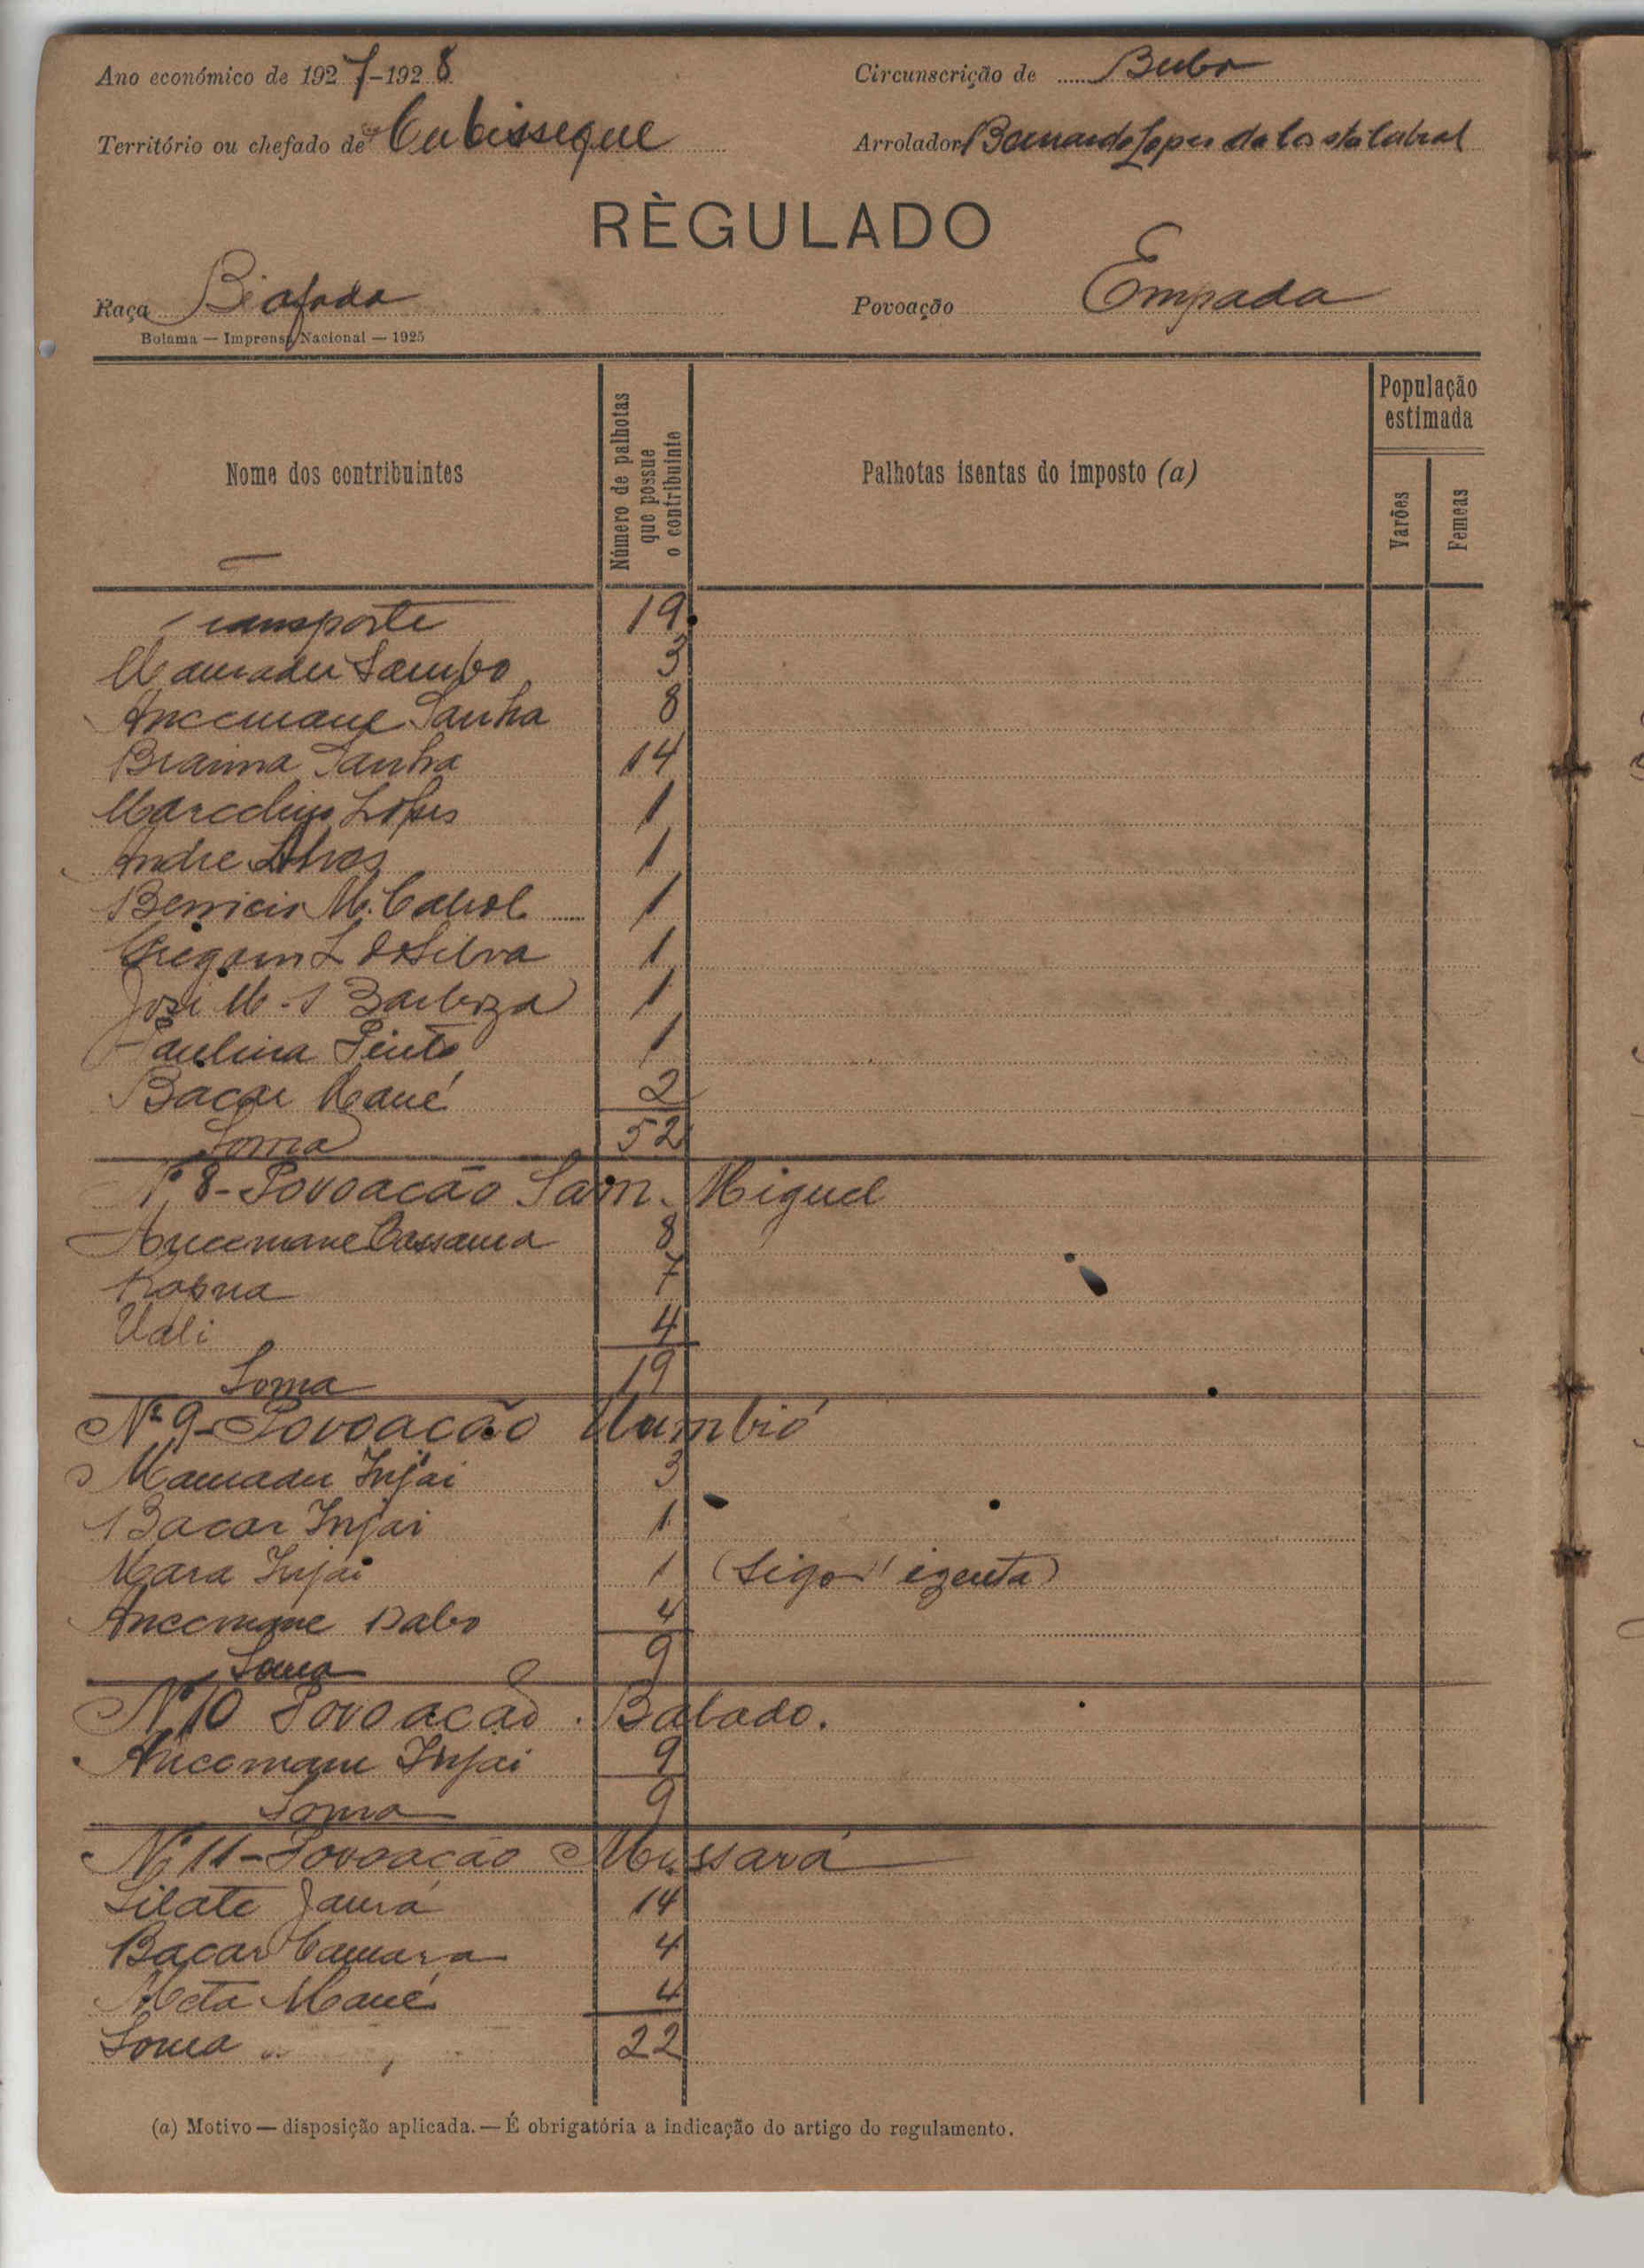 Ano económico de 1927-1928
Circunscrição de Buba
Território ou chefado de Cubisseque
Arrolador Bernardo Lopes da Costa Cabral
RÈGULADO
Raça Biafada
Povoação Empada
Bolama — Imprensa Nacional — 1925
Nome dos contribuintes
Número de palhotas que possue o contribuinte
Palhotas isentas do imposto (a)
População estimada
Varões
Femeas
Transporte 19
Mamadu Sambo 3
Ancemane Sanha 8
Braima Sanha 14
Marcelino Lopes 1
Andre Alves 1
Benicio M. Cabral 1
Gregorio L da Silva 1
José M. S Barboza 1
Paulina Pinto 1
Bacar Mané 2
Soma 52
Nº 8 - Povoacão Sam. Miguel
Ancemane Cassama 8
7
Uali 4
Soma 19
Nº 9 - Povoacão
Mamadu Injai 3
Bacar Injai 1
Mara Injai 1 (Siga izenta)
Ancemane Dabo 4
Soma 9
Nº 10 Povoacão. Babado.
Ancemane Injai 9
Soma 9
Nº 11 - Povoacão Mussará
Silate Jaurá 14
Bacar Camara 4
Meta Mané 4
Soma 22
(a) Motivo — disposição aplicada. — É obrigatória a indicação do artigo do regulamento.